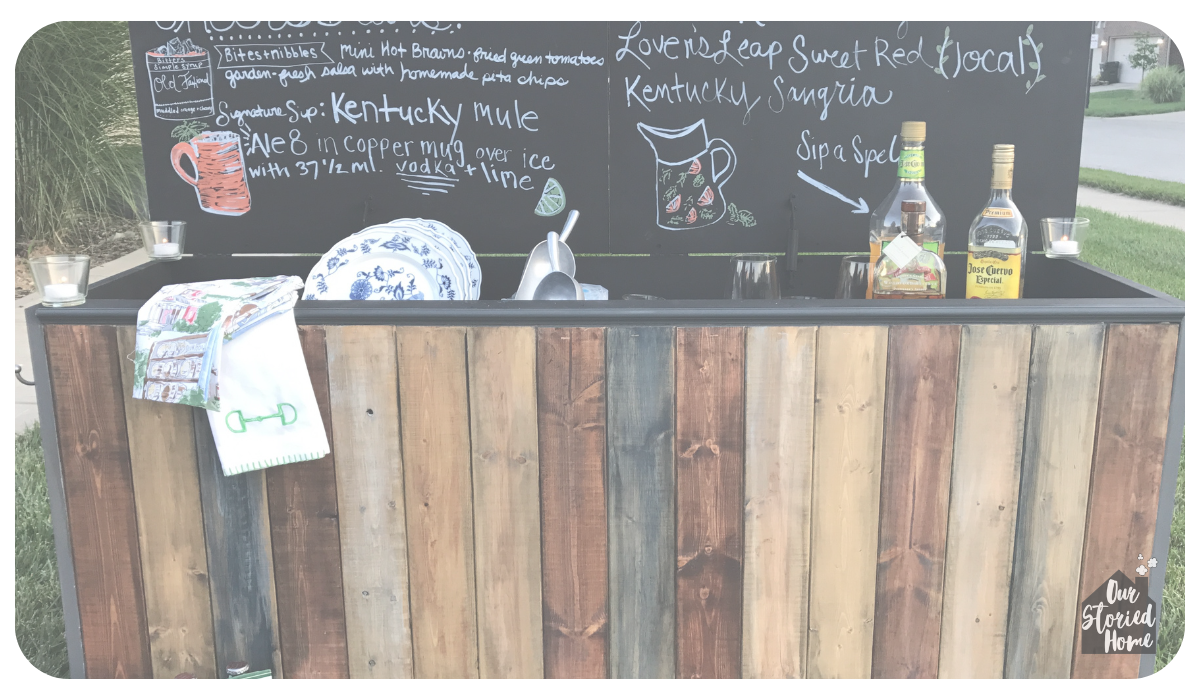 Bites+nibbles Mini Hot Browns · fried green tomatoes
garden-fresh salsa with homemade pita chips
Bitters
Simple Syrup
Old Fashioned
muddled orange + cherry
Signature Sip: Kentucky Mule
Ale 8 in copper mug over ice
with 37 1/2 ml. vodka + lime
Lover's Leap Sweet Red {local}
Kentucky Sangria
Sip a Spel
PREMIUM
Jose Cuervo
Especial
Our
Storied
Home